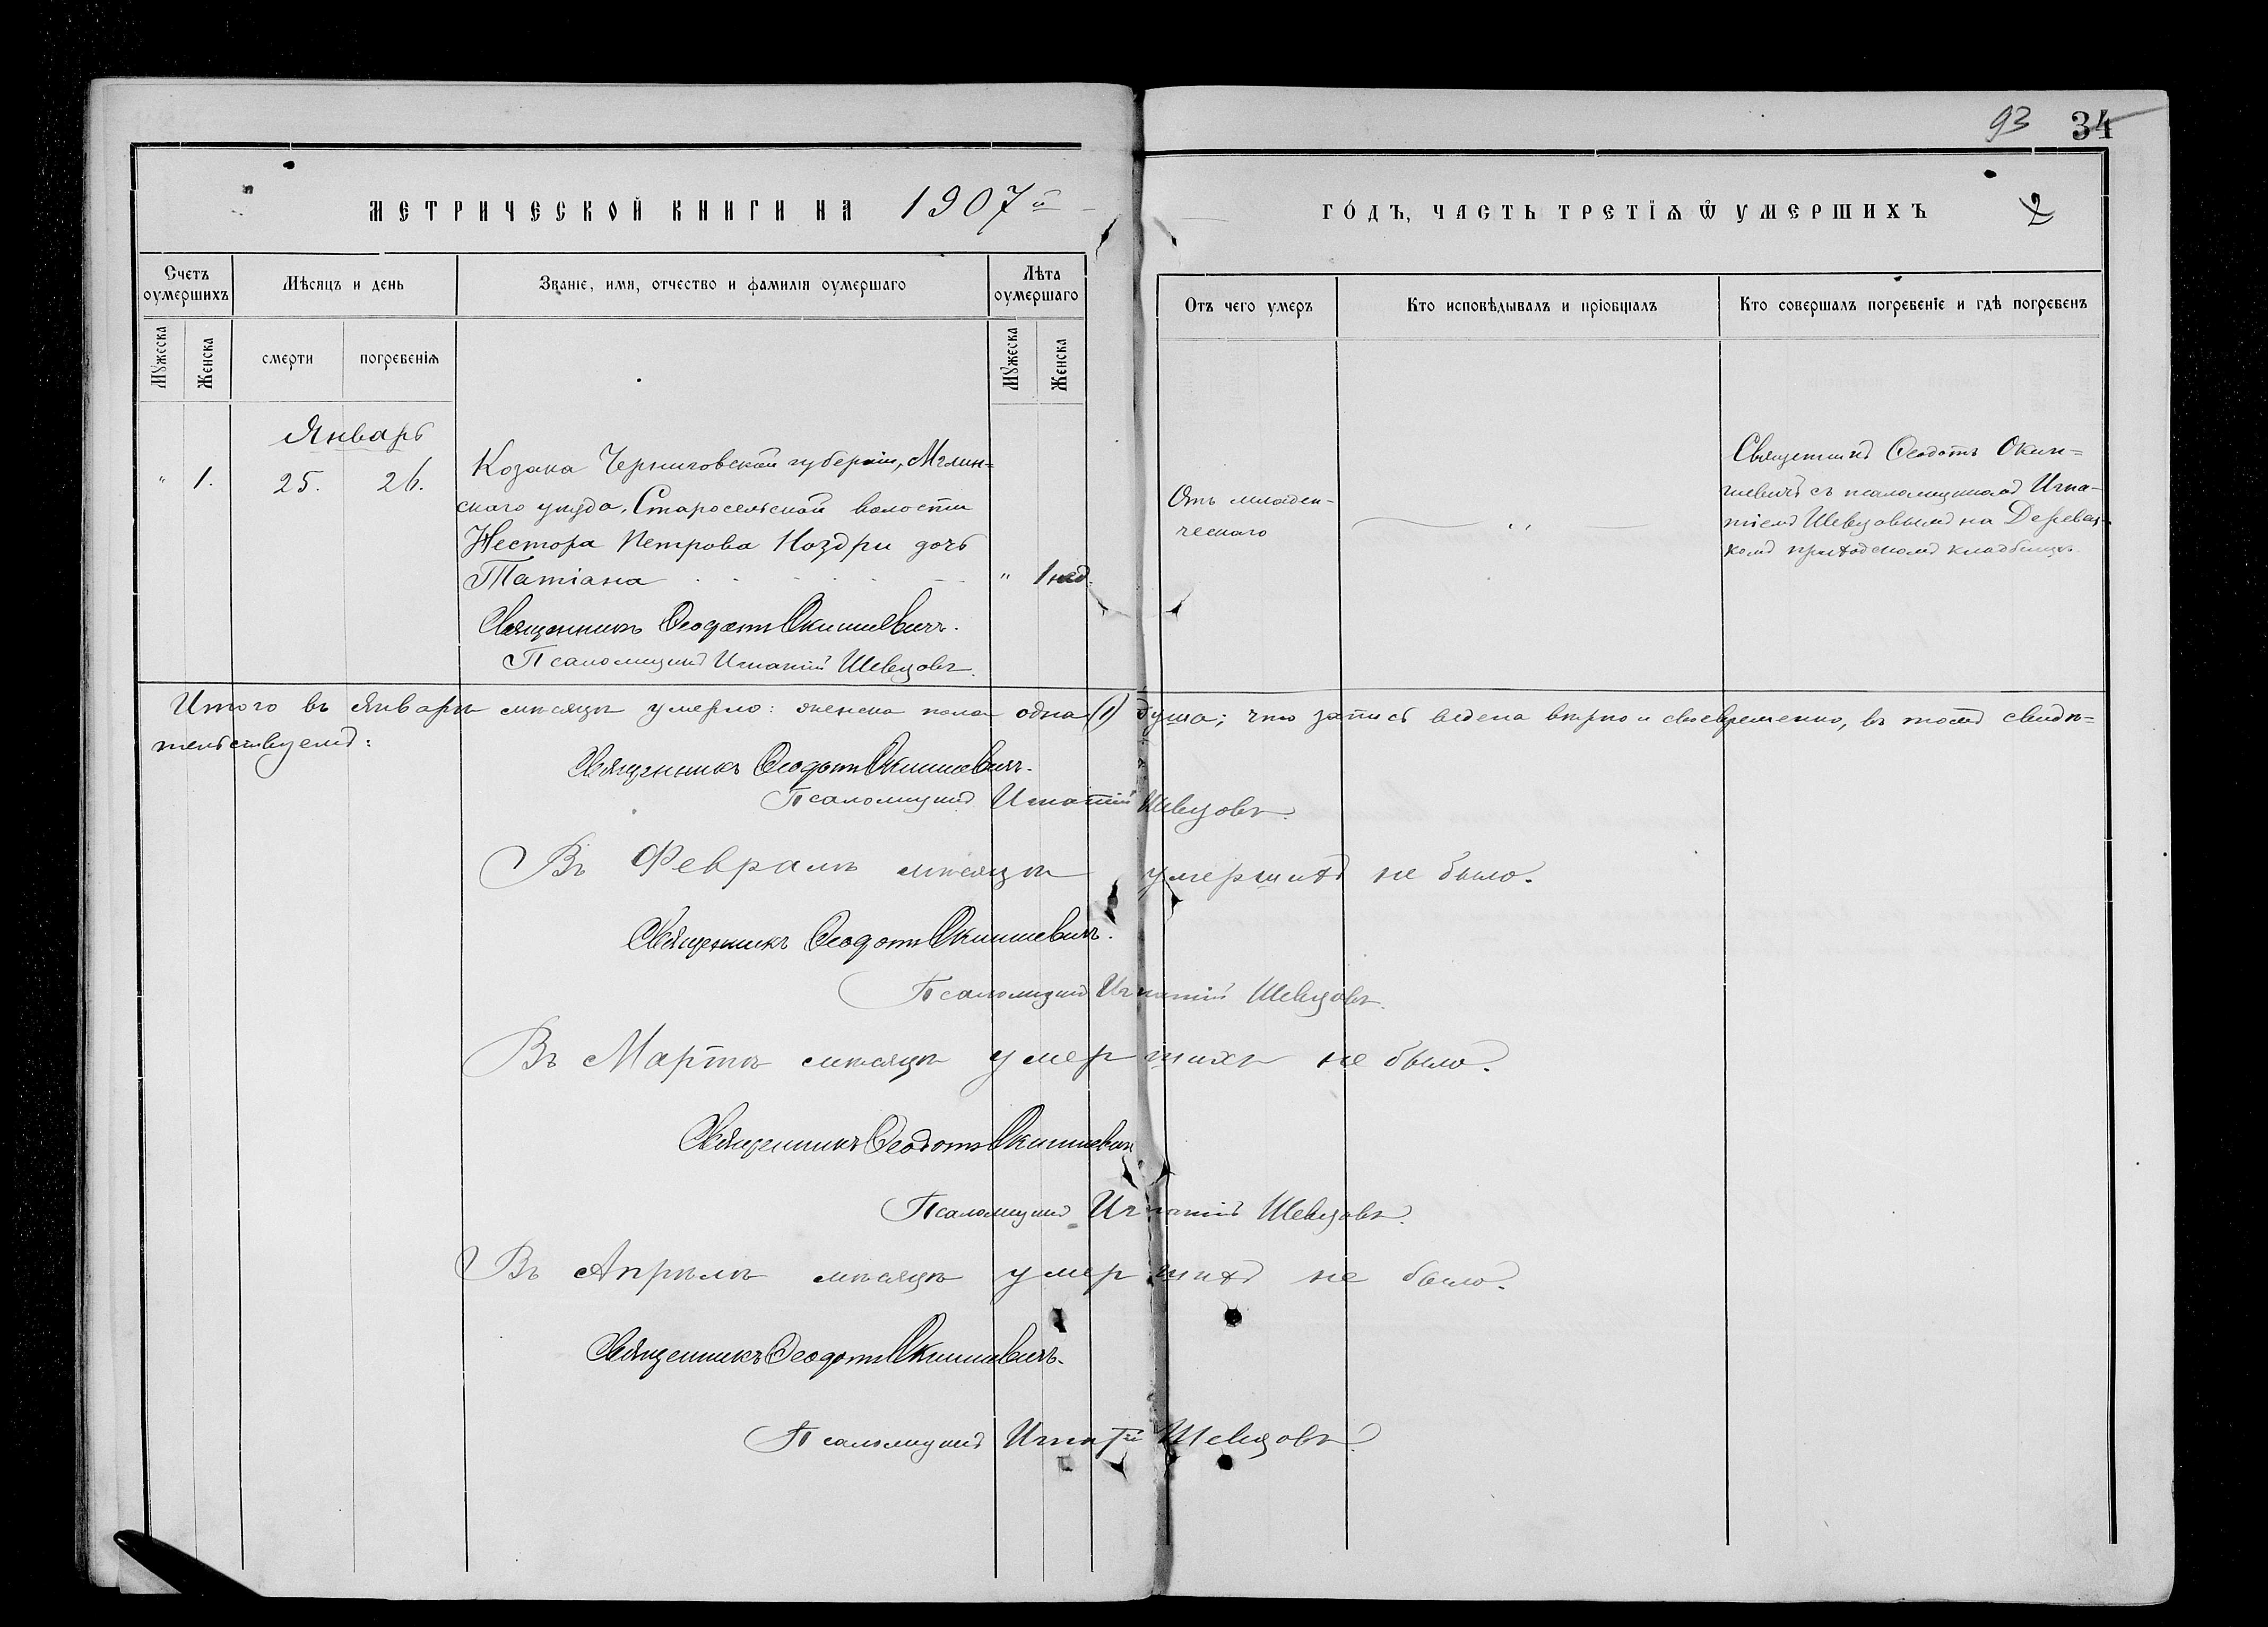 93 34
МЕТРИЧЕСКОЙ КНИГИ НА 1907й
ГО́ДЪ, ЧАСТЬ ТРЕТІѦ Ѿ УМЕРШИХЪ 2
Счетъ оумершихъ
Мѣсяцъ и день
Званіе, имя, отчество и фамилія оумершаго
Лѣта оумершаго
Отъ чего умеръ
Кто исповѣдывалъ и пріобщалъ
Кто совершалъ погребеніе и гдѣ погребенъ
Мужеска
Женска
смерти
погребенія
Мужеска
Женска
Январь
" 1. 25. 26.
Козака Черниговской губерніи, Мглин=
скаго уѣзда, Старосельской волости
Нестора Петрова Ноздри дочь
Татіана " 1 нед.
Отъ младен-
ческаго
"
Священникъ Ѳеодотъ Окин=
шевичъ съ псаломщикомъ Игна-
тіемъ Шевцовымъ на Деревец-
комъ приходскомъ кладбищѣ
Священникъ Ѳеодотъ Окиншевичъ.
Псаломщикъ Игнатій Шевцовъ.
Итого въ Январѣ мѣсяцѣ умерло: женска пола одна (1) душа; что запись ведена вѣрно и своевременно, въ томъ свидѣ=
тельствуемъ:
Священникъ Ѳеодотъ Окиншевичъ.
Псаломщикъ Игнатій Шевцовъ.
Въ Февралѣ мѣсяцѣ умершихъ не было.
Священникъ Ѳеодотъ Окиншевичъ.
Псаломщикъ Игнатій Шевцовъ.
Въ Мартѣ мѣсяцѣ умершихъ не было.
Священникъ Ѳеодотъ Окиншевичъ
Псаломщикъ Игнатій Шевцовъ.
Въ Апрѣлѣ мѣсяцѣ умершихъ не было.
Священникъ Ѳеодотъ Окиншевичъ.
Псаломщикъ Игнатій Шевцовъ.